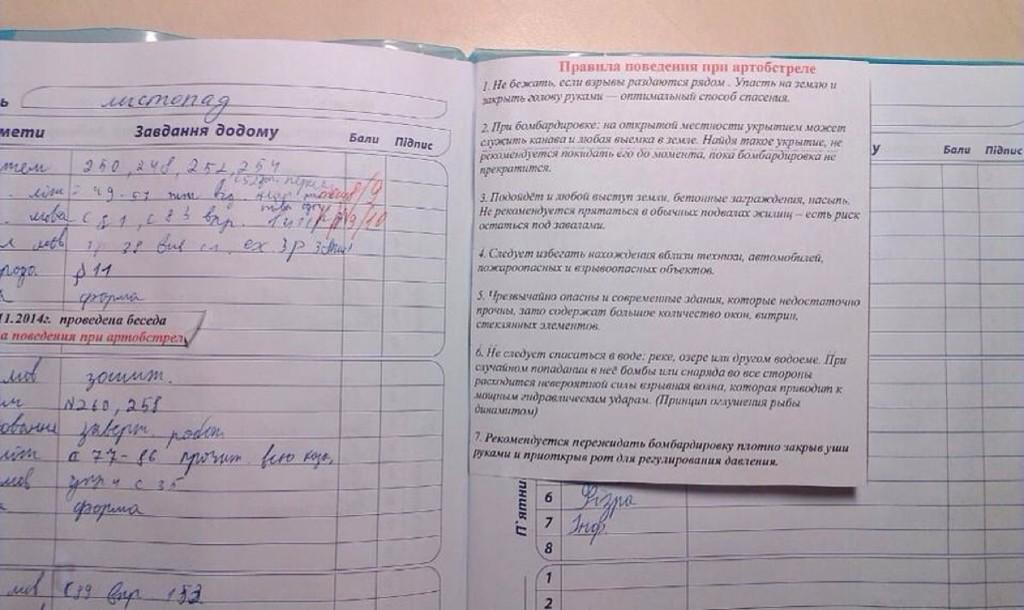 листопад
Завдання додому
Бали
Підпис
250, 248, 252, 254
мова с 81, с 83 впр.
§ 11
форма
11.2014г. проведена беседа
а поведения при артобстрел
мов зошит.
№260, 258
заверт. робот
с 77-86 прочит. всю
мов впр 4 с 35
форма
мов с89 впр 153
Правила поведения при артобстреле
1. Не бежать, если взрывы раздаются рядом . Упасть на землю и
закрыть голову руками — оптимальный способ спасения.
2. При бомбардировке: на открытой местности укрытием может
служить канава и любая выемка в земле. Найдя такое укрытие, не
рекомендуется покидать его до момента, пока бомбардировка не
прекратится.
3. Подойдёт и любой выступ земли, бетонные заграждения, насыпь.
Не рекомендуется прятаться в обычных подвалах жилищ – есть риск
остаться под завалами.
4. Следует избегать нахождения вблизи техники, автомобилей,
пожароопасных и взрывоопасных объектов.
5. Чрезвычайно опасны и современные здания, которые недостаточно
прочны, зато содержат большое количество окон, витрин,
стеклянных элементов.
6. Не следует спасаться в воде: реке, озере или другом водоеме. При
случайном попадании в неё бомбы или снаряда во все стороны
расходится невероятной силы взрывная волна, которая приводит к
мощным гидравлическим ударам. (Принцип оглушения рыбы
динамитом)
7. Рекомендуется пережидать бомбардировку плотно закрыв уши
руками и приоткрыв рот для регулирования давления.
у
Бали
Підпис
П'ятни
6 Фізра
7 Інф.
8
1
2